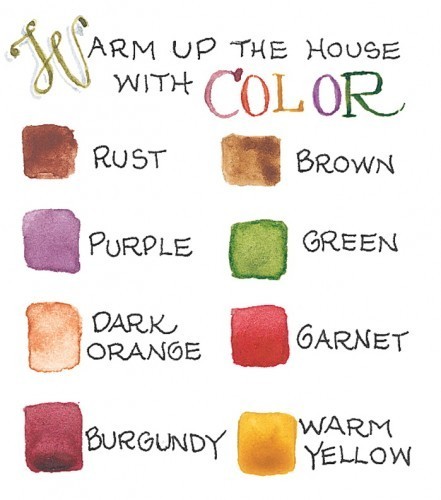 WARM UP THE HOUSE
WITH COLOR
RUST
BROWN
PURPLE
GREEN
DARK
ORANGE
GARNET
BURGUNDY
WARM
YELLOW